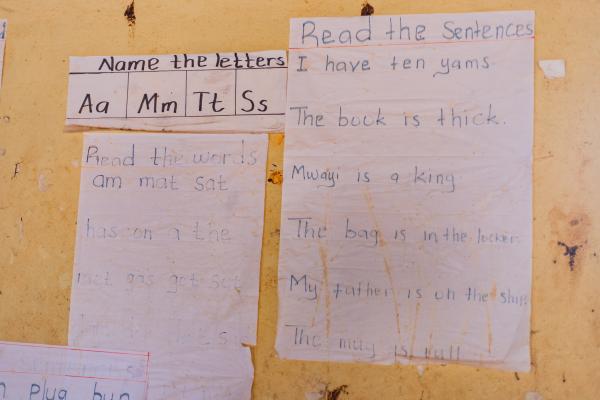 Name the letters
Aa Mm Tt Ss
Read the words
am mat sat
has on a the
gas got sat
Read the Sentences
I have ten yams
The book is thick.
Mwayi is a king
The bag is in the locker.
My father is on the ship
The mug is full
plug bun